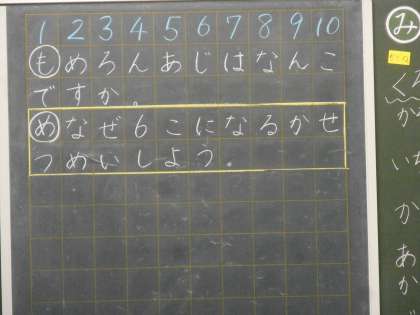 1 2 3 4 5 6 7 8 9 10
も めろんあじはなんこ
ですか。
め なぜ6こになるかせ
つめいしよう。
み
か
い
か
あ
か